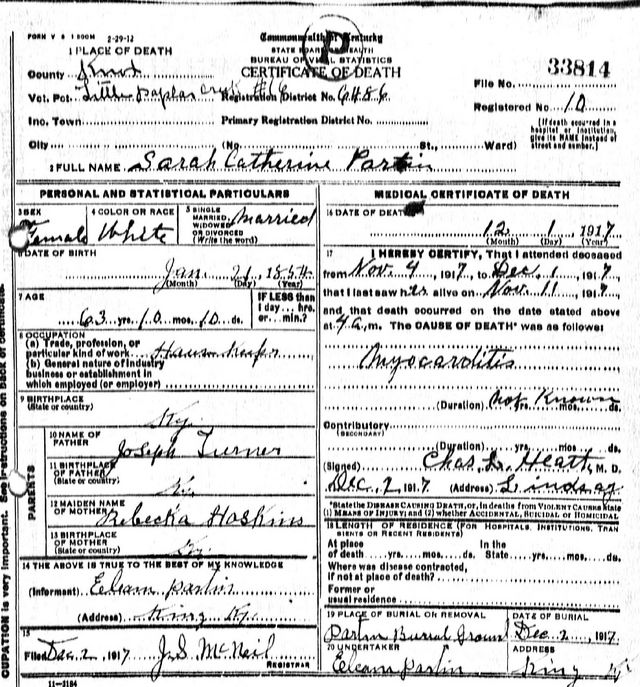 FORM V S 1 500M 2-29-12
1 PLACE OF DEATH
Commonwealth of Kentucky
STATE BOARD OF HEALTH
BUREAU OF VITAL STATISTICS
CERTIFICATE OF DEATH
County Knox
File No. 33814
Vot. Pct. Little poplar Crek #6 Registration District No. 6486
Registered No. 10
Inc. Town Primary Registration District No.
(If death occurred in a hospital or institution, give its NAME instead of street and number.)
City (No. St., Ward)
2 FULL NAME Sarah Catherine Partin
PERSONAL AND STATISTICAL PARTICULARS
3 SEX Female
4 COLOR OR RACE White
5 SINGLE MARRIED, WIDOWED OR DIVORCED (Write the word) Married
6 DATE OF BIRTH
Jan 21 1854
(Month) (Day) (Year)
7 AGE
63 yrs. 10 mos. 10 ds.
IF LESS than 1 day... hrs. or... min.?
8 OCCUPATION
(a) Trade, profession, or particular kind of work
(b) General nature of industry business or establishment in which employed (or employer)
9 BIRTHPLACE (State or country) Ky.
PARENTS
10 NAME OF FATHER Joseph Turner
11 BIRTHPLACE OF FATHER (State or country) Ky.
12 MAIDEN NAME OF MOTHER Rebecka Hoskins
13 BIRTHPLACE OF MOTHER (State or country) Ky
14 THE ABOVE IS TRUE TO THE BEST OF MY KNOWLEDGE
(Informant) Elcam Partin
(Address) King Ky.
15
Filed Dec 2, 1917 J.S. McNeil
REGISTRAR
11-3184
MEDICAL CERTIFICATE OF DEATH
16 DATE OF DEATH
12 1 1917
(Month) (Day) (Year)
17 I HEREBY CERTIFY, That I attended deceased
from Nov. 4, 1917, to Dec. 1, 1917
that I last saw her alive on Nov. 11, 1917,
and that death occurred on the date stated above
at 4 a.m. The CAUSE OF DEATH* was as follows:
Myocarditis
(Duration) Not Known yrs. mos. ds.
Contributory
(SECONDARY)
(Duration) yrs. mos. ds.
(Signed) Chas. L. Heath, M. D.
Dec 2, 1917 (Address) Lindsay
*State the DISEASE CAUSING DEATH, or, in deaths from VIOLENT CAUSES state (1) MEANS OF INJURY; and (2) whether ACCIDENTAL, SUICIDAL or HOMICIDAL
18 LENGTH OF RESIDENCE (FOR HOSPITALS, INSTITUTIONS, TRANSIENTS OR RECENT RESIDENTS)
At place of death yrs. mos. ds. In the State yrs. mos. ds.
Where was disease contracted, if not at place of death?
Former or usual residence
19 PLACE OF BURIAL OR REMOVAL Partin Burial Groun
DATE OF BURIAL Dec 2, 1917
20 UNDERTAKER Elcam Partin
ADDRESS King Ky
CUPATION is very important. See instructions on back of certificate.